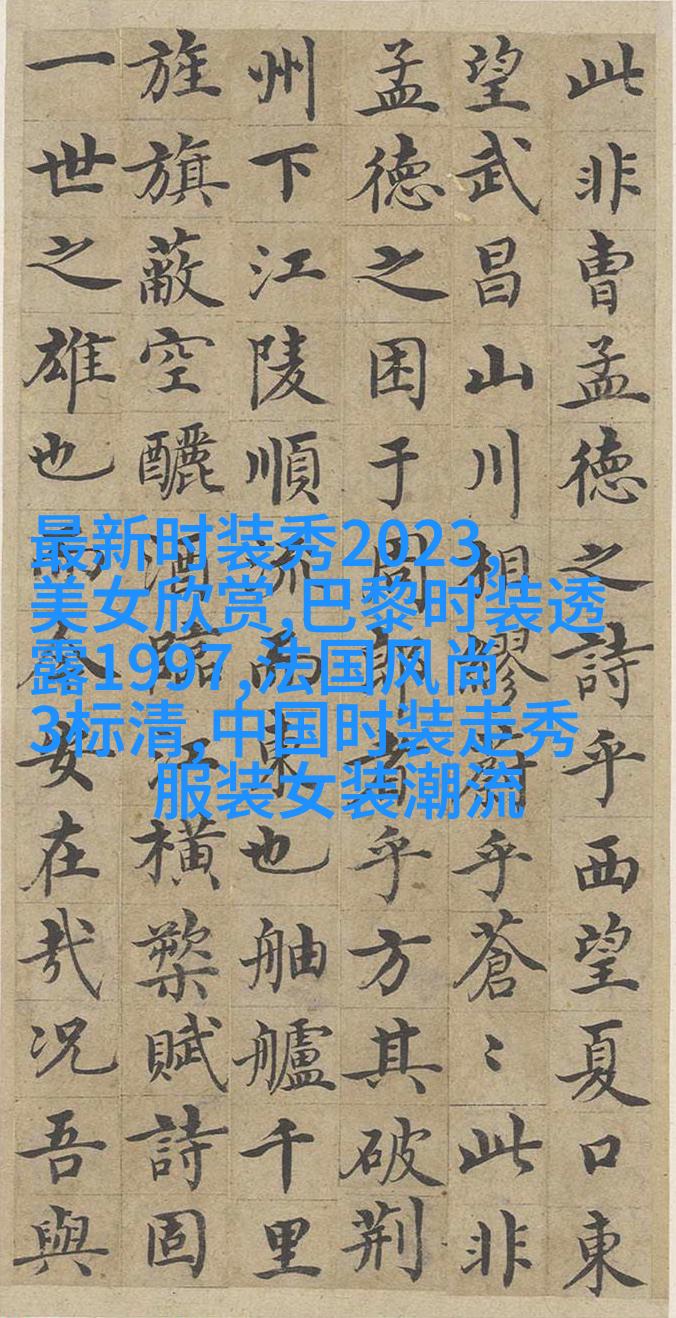 此非曹孟德之詩乎西望夏口東
望武昌山川相繆蔚乎蒼〻此非
孟德之困于周郎者乎方其破荆
州下江陵順流而東也舳艫千里
旌旗蔽空釃酒臨江横槊賦詩固
一世之雄也而今安在哉况吾與
最新时装秀2023,
美女欣赏,巴黎时装透
露1997,法国风尚
3标清,中国时装走秀
服装女装潮流